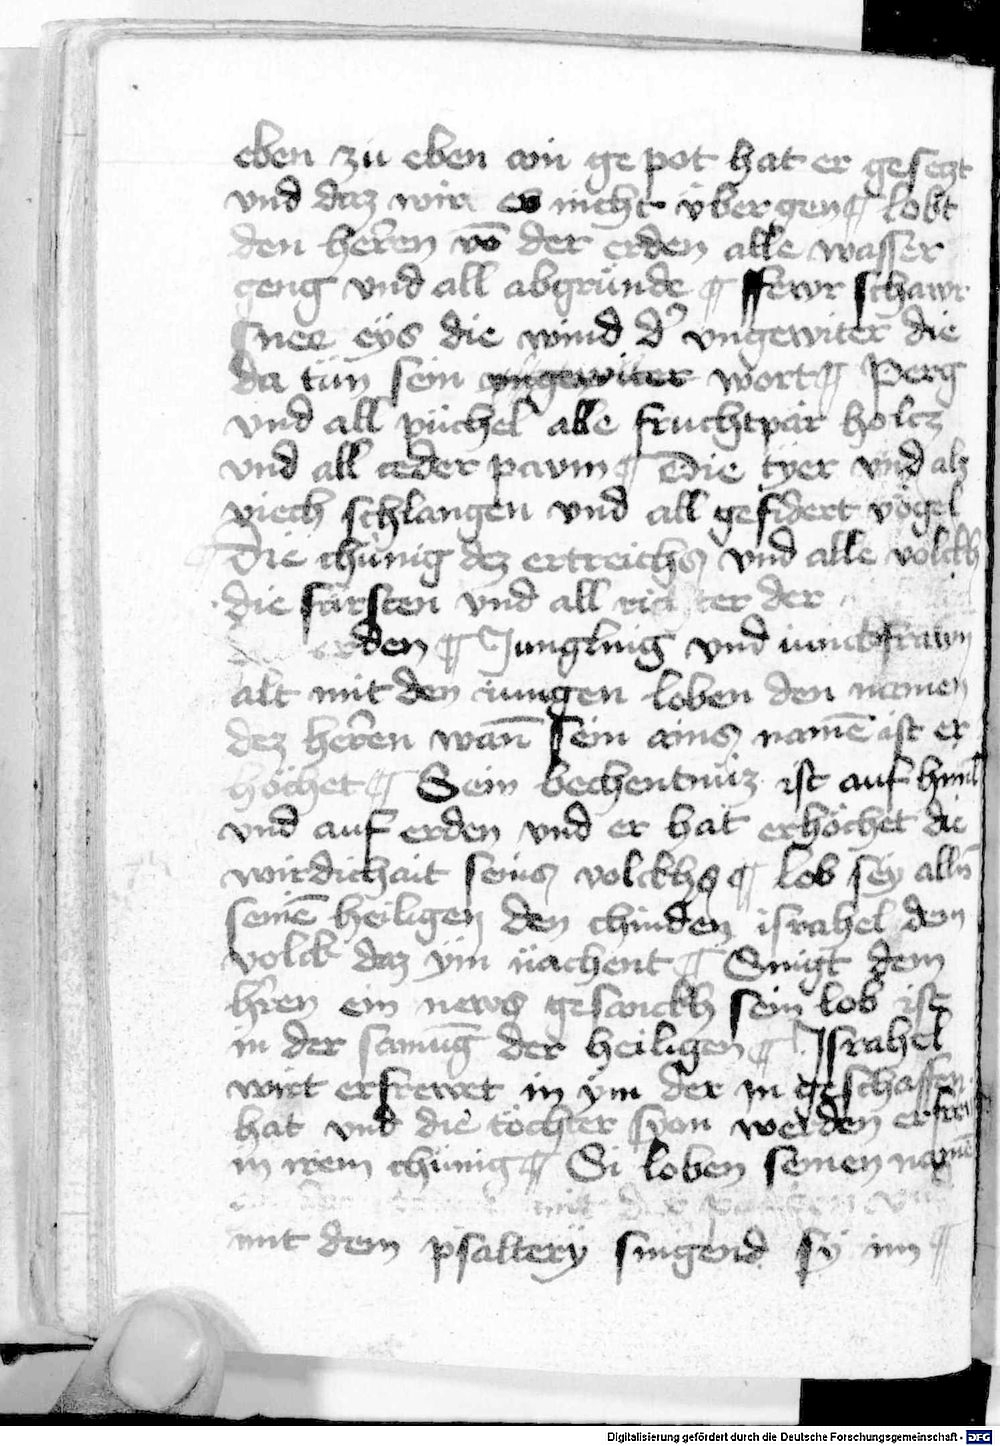 eben zu eben ain ge pot hat er gesetzt
vnd daz wir es nicht übergen ¶ lobt
den herren vō der erden alle wasser
geng vnd all abgründe ¶ fewr schawr
snee eÿs die wind d' vngewiter die
da tün sein vngewiter wort ¶ Perg
vnd all püchel alle fruchtpär holcz
vnd all ceder pawm ¶ Die tyer vnd alz
viech schlangen vnd all gefidert vögel
Die chünig dez ertreichs vnd alle volckh
die fürsten vnd all richter der
erden ¶ Jungling vnd iunckfrawn
alt mit den iungen loben den namen
dez herren wañ sein ains namē ist er
höchet ¶ Sein bechentnüz ist auf himl
vnd auf erden vnd er hat erhöchet die
wirdichait seins volckhs ¶ lob sey alln
seinē heiligen den chinden israhel dem
volck daz ym nachent ¶ Singt dem
hrēn ein news gesanckh sein lob ist
in der samūg der heiligen ¶ Israhel
wirt erfrewet in ym der in geschaffen
hat vnd die töchter syon werden erfrew
in irem chünig ¶ Si loben seinen namē
mit der
mit dem psaltery singend sÿ im ¶
Digitalisierung gefördert durch die Deutsche Forschungsgemeinschaft - DFG